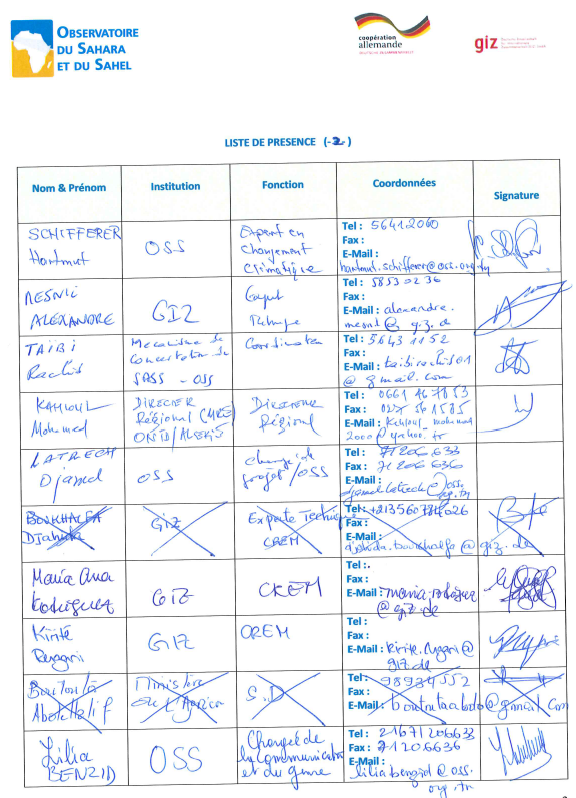 OBSERVATOIRE
DU SAHARA
ET DU SAHEL
coopération
allemande
giz
LISTE DE PRESENCE (-2-)
Nom & Prénom
Institution
Fonction
Coordonnées
Signature
SCHIFFERER
Hartmut
OSS
Expert en
changement
climatique
Tel : 56412060
Fax :
E-Mail :
hartmut.schifferer@oss.org.tn
MESNIL
ALEXANDRE
GIZ
Tel : 58530236
Fax :
E-Mail : alexandre.
mesnil@giz.de
TAIBI
Rachid
Mécanisme de
Concertation du
SASS - OSS
Coordinateur
Tel : 56431152
Fax :
E-Mail :
@gmail.com
KAHLOUL
Mohamed
DIRECTEUR
Régional
ONID/ALGERIE
Directeur
Régional
Tel : 0661 467853
Fax : 027 561585
E-Mail : Kahloul_mohamed
2000@yahoo.fr
LATRECH
Djamel
OSS
chargé de
projet/OSS
Tel : 71206633
Fax : 71206636
E-Mail :
djamel.latrech@oss.
org.tn
BOUKHALFA
Djahida
GIZ
Experte Technique
CREM
Tel :
Fax :
E-Mail :
djahida.boukhalfa@giz.de
Maria Ana
Rodriguez
GIZ
CREM
Tel :
Fax :
E-Mail : maria.rodriguez
@giz.de
GIZ
CREM
Tel :
Fax :
E-Mail :
giz.de
Abdellatif
Ministère
S.D
Tel : 98934552
Fax :
E-Mail :
@gmail.com
Lilia
BENZID
OSS
Chargée de
la Communication
et du genre
Tel : 21671206633
Fax : 71206636
E-Mail :
lilia.benzid@oss.
org.tn